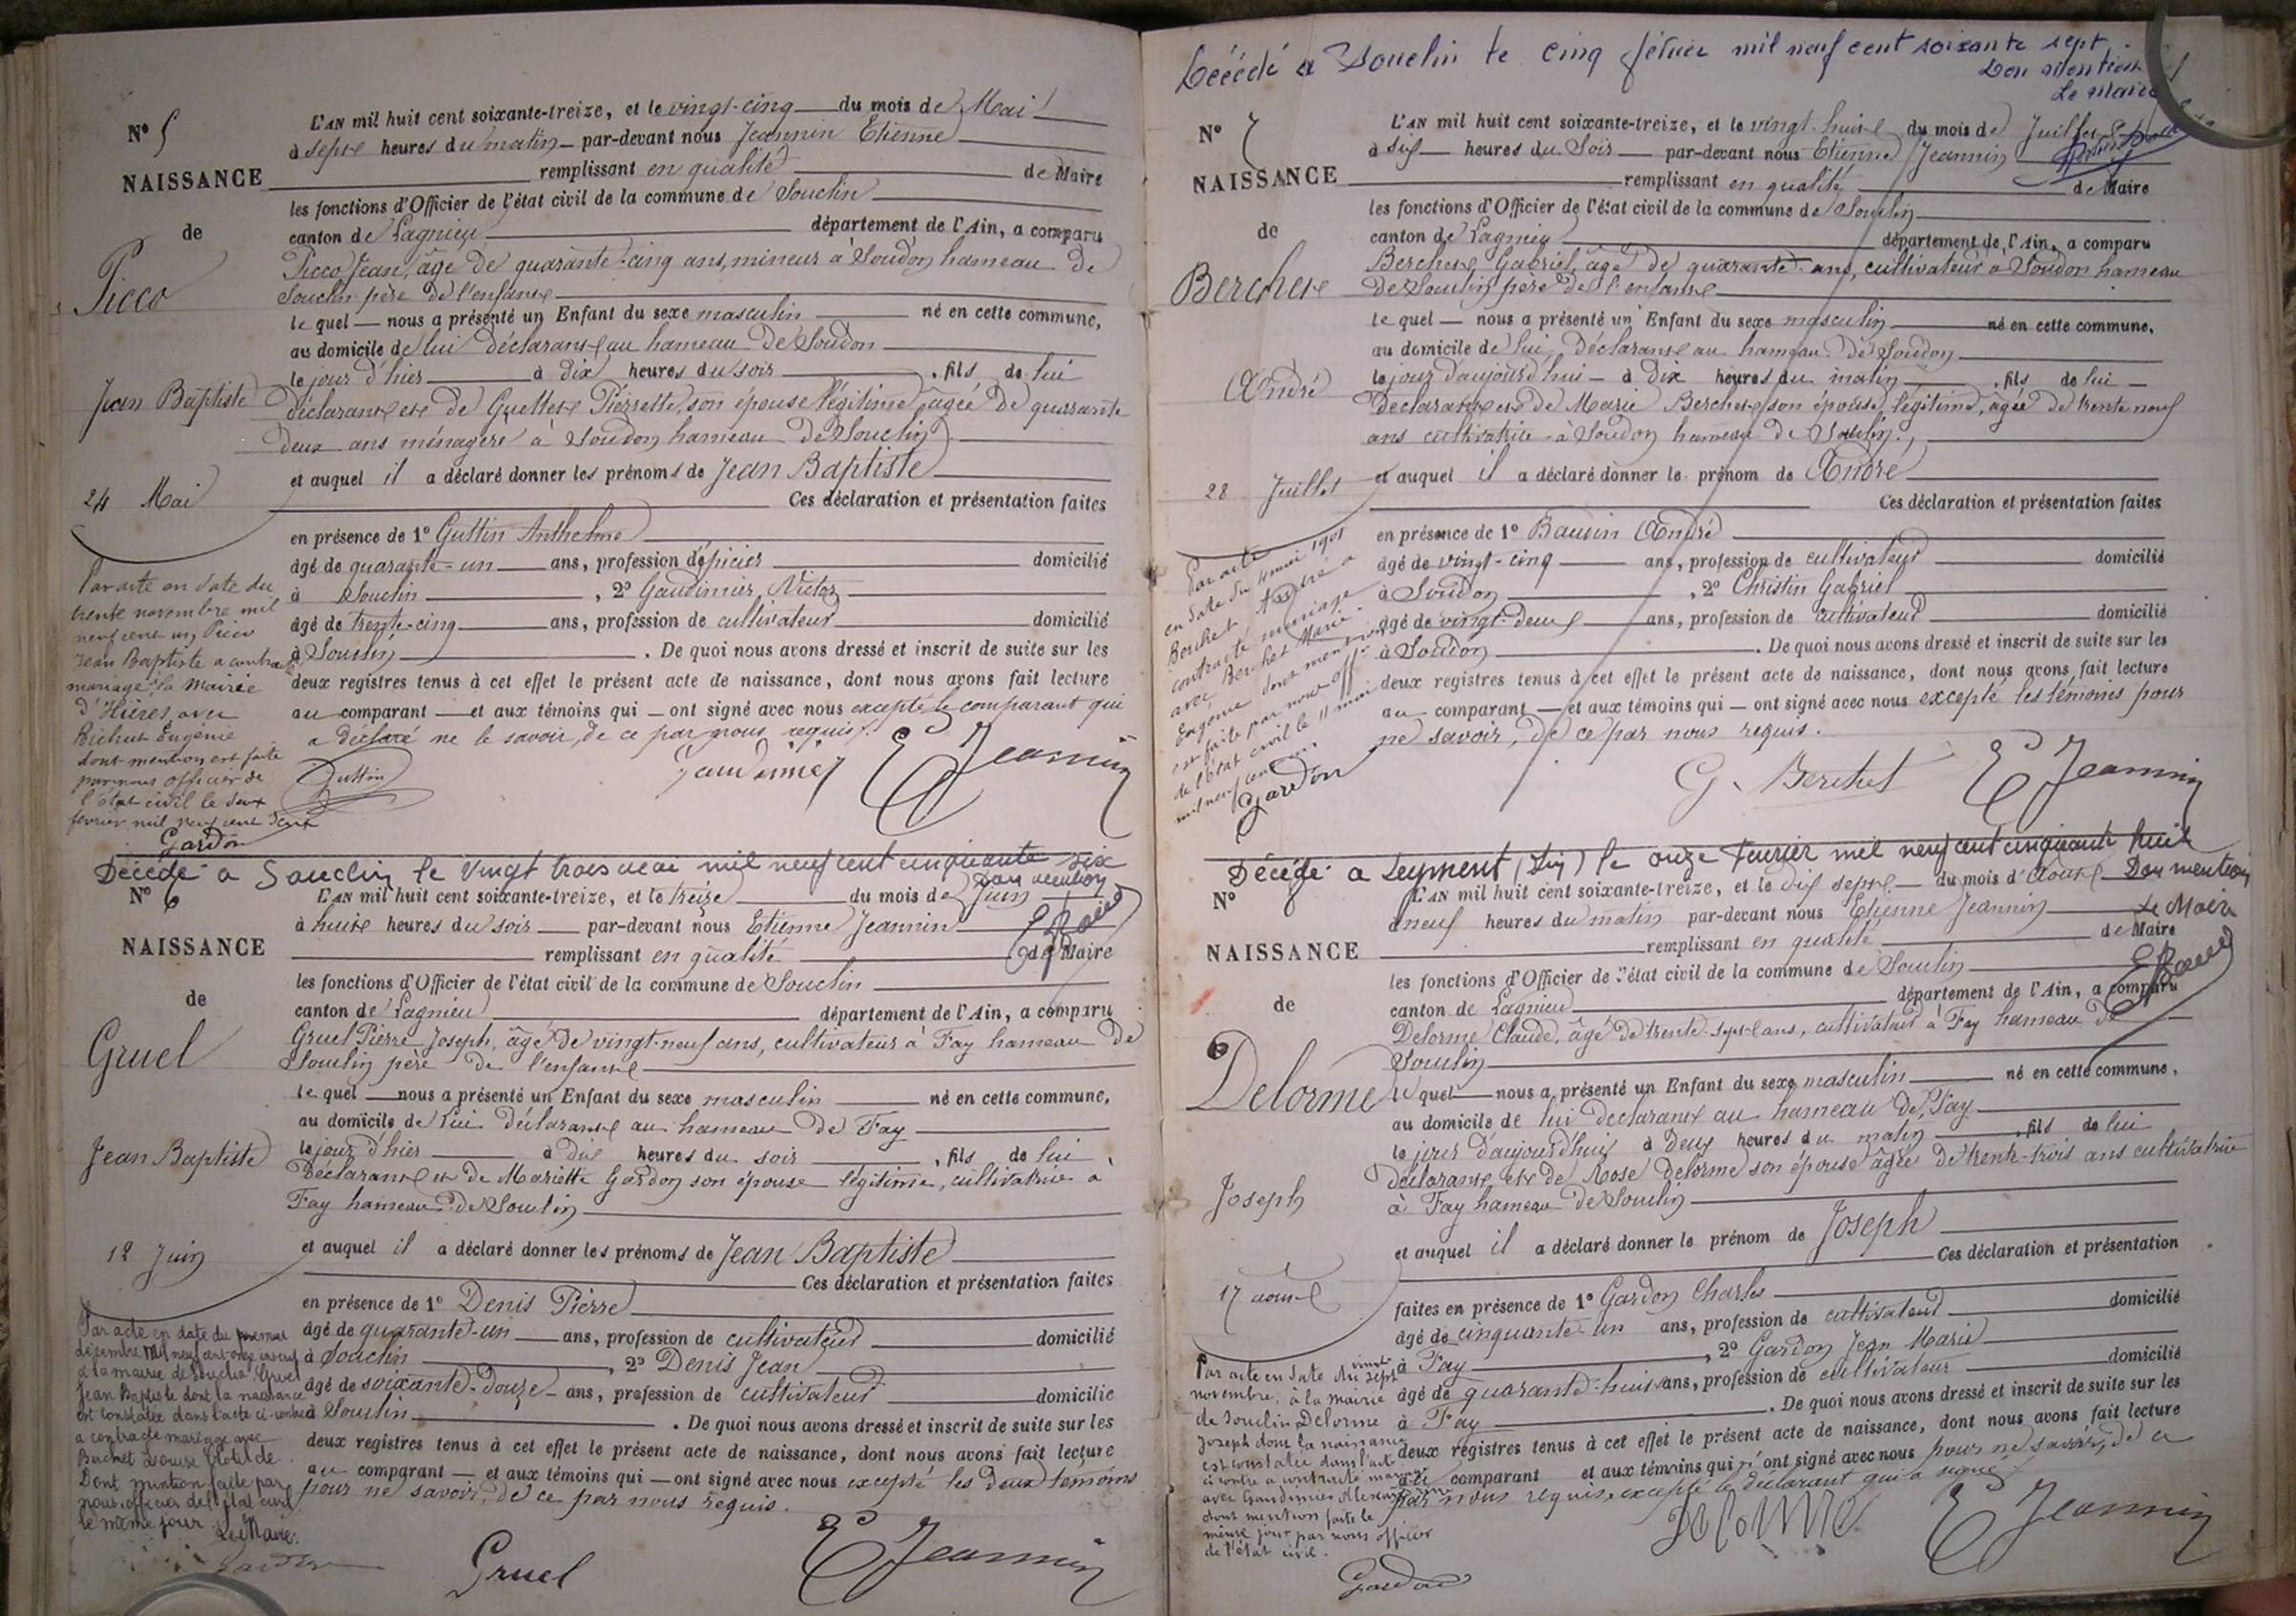 N° 5
NAISSANCE
de
Picco
Jean Baptiste
24 Mai
L'AN mil huit cent soixante-treize, et le vingt-cinq du mois de Mai
à sept heures du matin par-devant nous Jeannin Etienne
remplissant en qualité de Maire
les fonctions d'Officier de l'état civil de la commune de Souclin
canton de Lagnieu département de l'Ain, a comparu
Picco Jean, âgé de quarante-cinq ans, mineur à Soudon hameau de
Souclin père de l'enfant
le quel nous a présenté un Enfant du sexe masculin né en cette commune,
au domicile de lui déclarant au hameau de Soudon
le jour d'hier à dix heures du soir, fils de lui
déclarant et de Guettet Pierrette, son épouse légitime, âgée de quarante
deux ans ménagère à Soudon hameau de Souclin
et auquel il a déclaré donner les prénoms de Jean Baptiste
Ces déclaration et présentation faites
en présence de 1° Guttin Anthelme
âgé de quarante-un ans, profession d'épicier domicilié
à Souclin, 2° Gaudinier Victor
âgé de trente-cinq ans, profession de cultivateur domicilié
à Souclin. De quoi nous avons dressé et inscrit de suite sur les
deux registres tenus à cet effet le présent acte de naissance, dont nous avons fait lecture
au comparant et aux témoins qui ont signé avec nous excepté le comparant qui
a déclaré ne le savoir, de ce par nous requis.
Guttin Gaudinier E Jeannin
Par acte en date du
trente novembre mil
neuf cent un Picco
Jean Baptiste a contracté
mariage à la Mairie
d'Hières avec
Eugénie
dont mention est faite
par nous officier de
l'état civil le
février mil neuf cent
Gardon
Décédé à Souclin le vingt trois mai mil neuf cent cinquante six
Dont mention
N° 6
NAISSANCE
de
Gruel
Jean Baptiste
12 Juin
L'AN mil huit cent soixante-treize, et le treize du mois de Juin
à huit heures du soir par-devant nous Etienne Jeannin
remplissant en qualité de Maire
les fonctions d'Officier de l'état civil de la commune de Souclin
canton de Lagnieu département de l'Ain, a comparu
Gruel Pierre Joseph, âgé de vingt-neuf ans, cultivateur à Fay hameau de
Souclin père de l'enfant
le quel nous a présenté un Enfant du sexe masculin né en cette commune,
au domicile de lui déclarant au hameau de Fay
le jour d'hier à dix heures du soir, fils de lui
déclarant et de Mariette Gardon son épouse légitime, cultivatrice à
Fay hameau de Souclin
et auquel il a déclaré donner les prénoms de Jean Baptiste
Ces déclaration et présentation faites
en présence de 1° Denis Pierre
âgé de quarante-un ans, profession de cultivateur domicilié
à Souclin, 2° Denis Jean
âgé de soixante-douze ans, profession de cultivateur domicilié
à Souclin. De quoi nous avons dressé et inscrit de suite sur les
deux registres tenus à cet effet le présent acte de naissance, dont nous avons fait lecture
au comparant et aux témoins qui ont signé avec nous excepté les deux témoins
pour ne savoir, de ce par nous requis.
Gruel E Jeannin
Par acte en date du premier
décembre mil neuf cent onze inscrit
à la mairie de Souclin Gruel
Jean Baptiste dont la naissance
est constatée dans l'acte ci-contre
a contracté mariage avec
Louise Clotilde
Dont mention faite par
nous officier de l'état civil
le même jour.
Le Maire
Décédé à Souclin le cinq février mil neuf cent soixante sept.
Dont mention
Le Maire
N° 7
NAISSANCE
de
Berchet
André
28 Juillet
L'AN mil huit cent soixante-treize, et le vingt-huit du mois de Juillet
à six heures du soir par-devant nous Etienne Jeannin
remplissant en qualité de Maire
les fonctions d'Officier de l'état civil de la commune de Souclin
canton de Lagnieu département de l'Ain, a comparu
Berchet Gabriel, âgé de quarante ans, cultivateur à Soudon hameau
de Souclin père de l'enfant
le quel nous a présenté un Enfant du sexe masculin né en cette commune,
au domicile de lui déclarant au hameau de Soudon
le jour d'aujourd'hui à dix heures du matin, fils de lui
déclarant et de Marie Berchet son épouse légitime, âgée de trente neuf
ans cultivatrice à Soudon hameau de Souclin.
et auquel il a déclaré donner le prénom de André
Ces déclaration et présentation faites
en présence de 1° Bauvin André
âgé de vingt-cinq ans, profession de cultivateur domicilié
à Soudon, 2° Christin Gabriel
âgé de vingt-deux ans, profession de cultivateur domicilié
à Soudon. De quoi nous avons dressé et inscrit de suite sur les
deux registres tenus à cet effet le présent acte de naissance, dont nous avons fait lecture
au comparant et aux témoins qui ont signé avec nous excepté les témoins pour
ne savoir, de ce par nous requis.
G. Berchet E Jeannin
Par acte
en date du 4 mai 1901
Berchet André a
contracté mariage
avec Berchet Marie
Eugénie dont mention
est faite par nous off.
de l'état civil le 11 mai
mil neuf cent un.
Gardon
Décédé à Leyment (Ain) le onze février mil neuf cent cinquante huit
Dont mention
Le Maire
N° 8
NAISSANCE
de
Delorme
Joseph
17 août
L'AN mil huit cent soixante-treize, et le dix sept du mois d'Août
à neuf heures du matin par-devant nous Etienne Jeannin
remplissant en qualité de Maire
les fonctions d'Officier de l'état civil de la commune de Souclin
canton de Lagnieu département de l'Ain, a comparu
Delorme Claude, âgé de trente-sept ans, cultivateur à Fay hameau de
Souclin
le quel nous a présenté un Enfant du sexe masculin né en cette commune,
au domicile de lui déclarant au hameau de Fay
le jour d'aujourd'hui à deux heures du matin, fils de lui
déclarant et de Rose Delorme son épouse âgée de trente-trois ans cultivatrice
à Fay hameau de Souclin
et auquel il a déclaré donner le prénom de Joseph
Ces déclaration et présentation
faites en présence de 1° Gardon Charles
âgé de cinquante-un ans, profession de cultivateur domicilié
à Fay, 2° Gardon Jean Marie
âgé de quarante-huit ans, profession de cultivateur domicilié
à Fay. De quoi nous avons dressé et inscrit de suite sur les
deux registres tenus à cet effet le présent acte de naissance, dont nous avons fait lecture
au comparant et aux témoins qui n'ont signé avec nous pour ne savoir, de ce
par nous requis, excepté le déclarant qui a signé.
Delorme E Jeannin
Par acte en date du vingt sept
novembre, à la mairie
de Souclin Delorme
Joseph dont la naissance
est constatée dans l'acte
ci contre a contracté mariage
avec Gaudinier
dont mention faite le
même jour par nous officier
de l'état civil.
Gardon